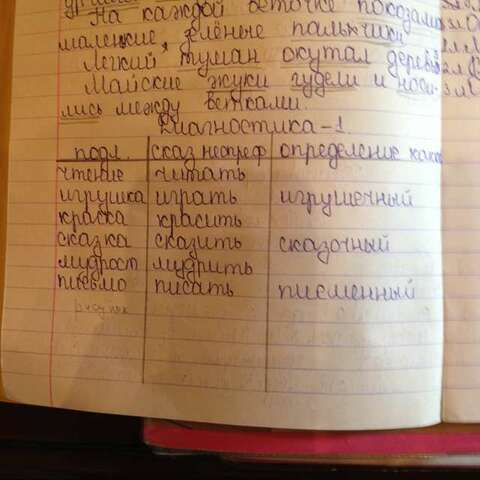 На каждой веточке показали
маленкие зелёные пальчики
Лёгкий туман окутал деревья
Майские жуки гудели и носи-
лись между ветками.
Диагностика-1
подл. сказ неопреф определение како
чтение читать
игрушка играть игрушечный
краска красить
сказка сказить сказочный
мудрост мудрить
письмо писать писменный
рисунок